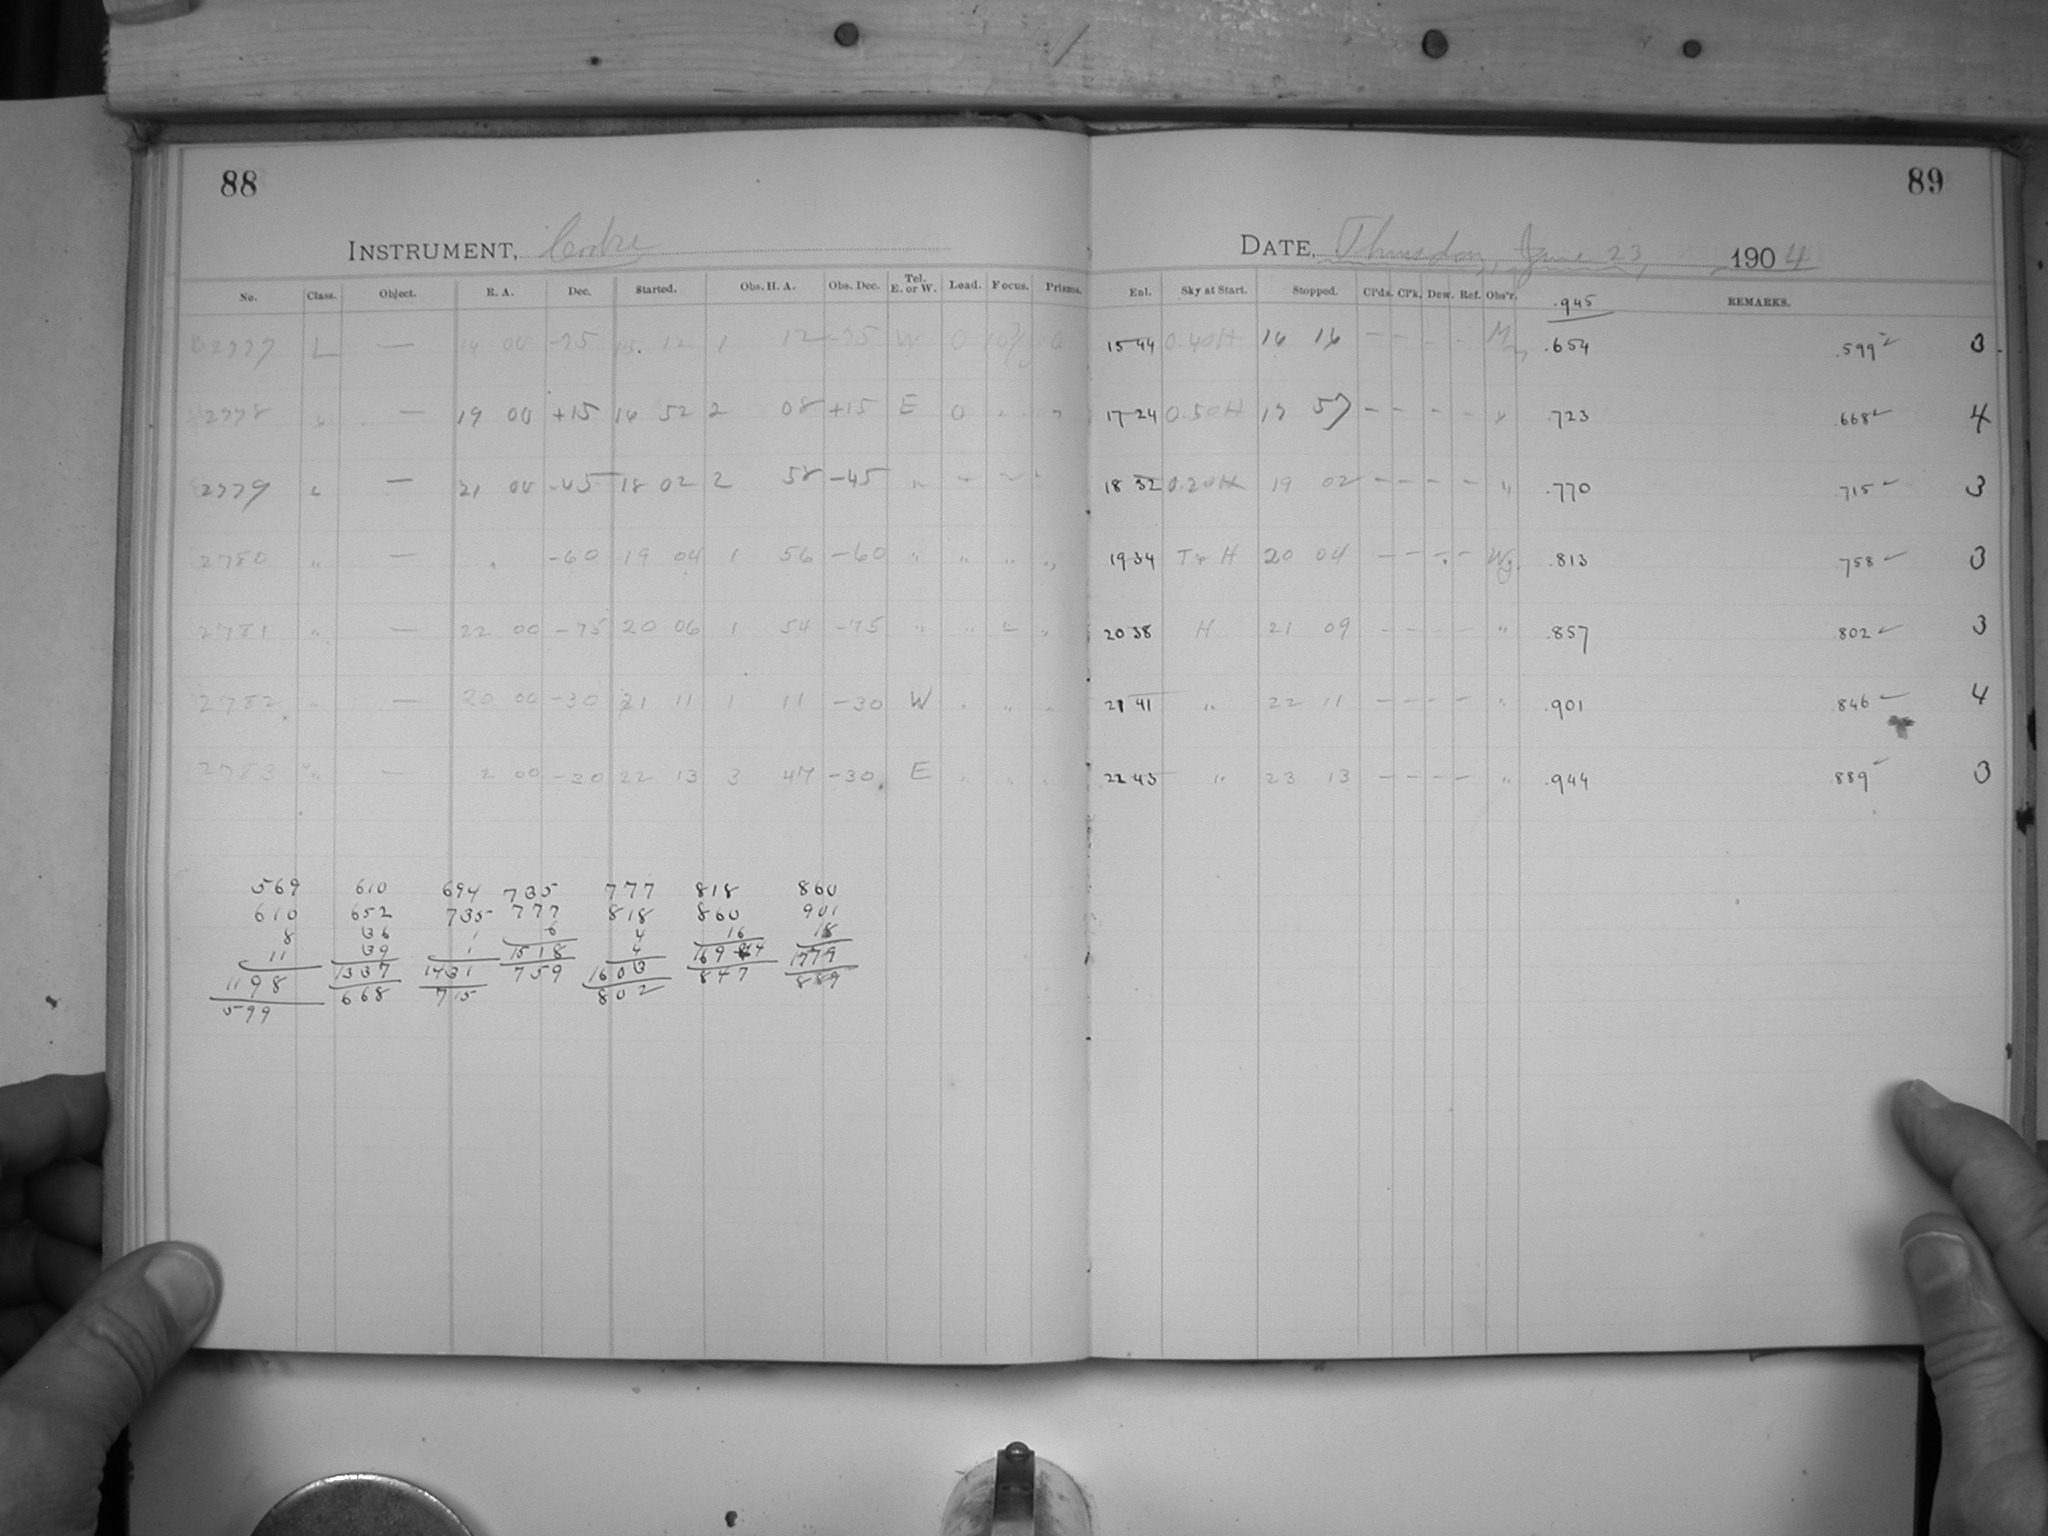 88
INSTRUMENT, Cooke
No. Class. Object. R. A. Dec. Started. Obs. H. A. Obs. Dec. Tel. E. or W. Load. Focus. Prisms.
2777 L — 14 00 -75 15 12 1 12 -75 W 0
2778 " — 19 00 +15 16 52 2 08 +15 E 0
2779 " — 21 00 -45 18 02 2 58 -45 "
2780 " — " -60 19 04 1 56 -60 " " " "
2781 " — 22 00 -75 20 06 1 54 -75 " " " "
2782 " — 20 00 -30 21 11 1 11 -30 W " " "
2783 " — 2 00 -30 22 13 3 47 -30 E " " "
569 610 694 735 777 818 860
610 652 735 777 818 860 901
8 36 1 6 4 16 18
11 39 1 1518 4 1694 1779
1198 1337 1431 759 1603 847 889
599 668 715 802
89
DATE, Thursday, June 23, 1904
Ent. Sky at Start. Stopped. Cl'ds. Cl'k. Dew. Ref. Obs'r. .945 REMARKS.
15 44 0.40H 16 16 — — — - .654 .599 ✓ 3
17 24 0.50H 17 57 — — — — " .723 .668 ✓ 4
18 32 0.20H 19 02 — — — — " .770 .715 ✓ 3
19 34 T & H 20 04 — — — — .813 .758 ✓ 3
20 38 H 21 09 — — — — " .857 .802 ✓ 3
21 41 " 22 11 — — — — " .901 .846 ✓ 4
22 43 " 23 13 — — — — " .944 .889 ✓ 3